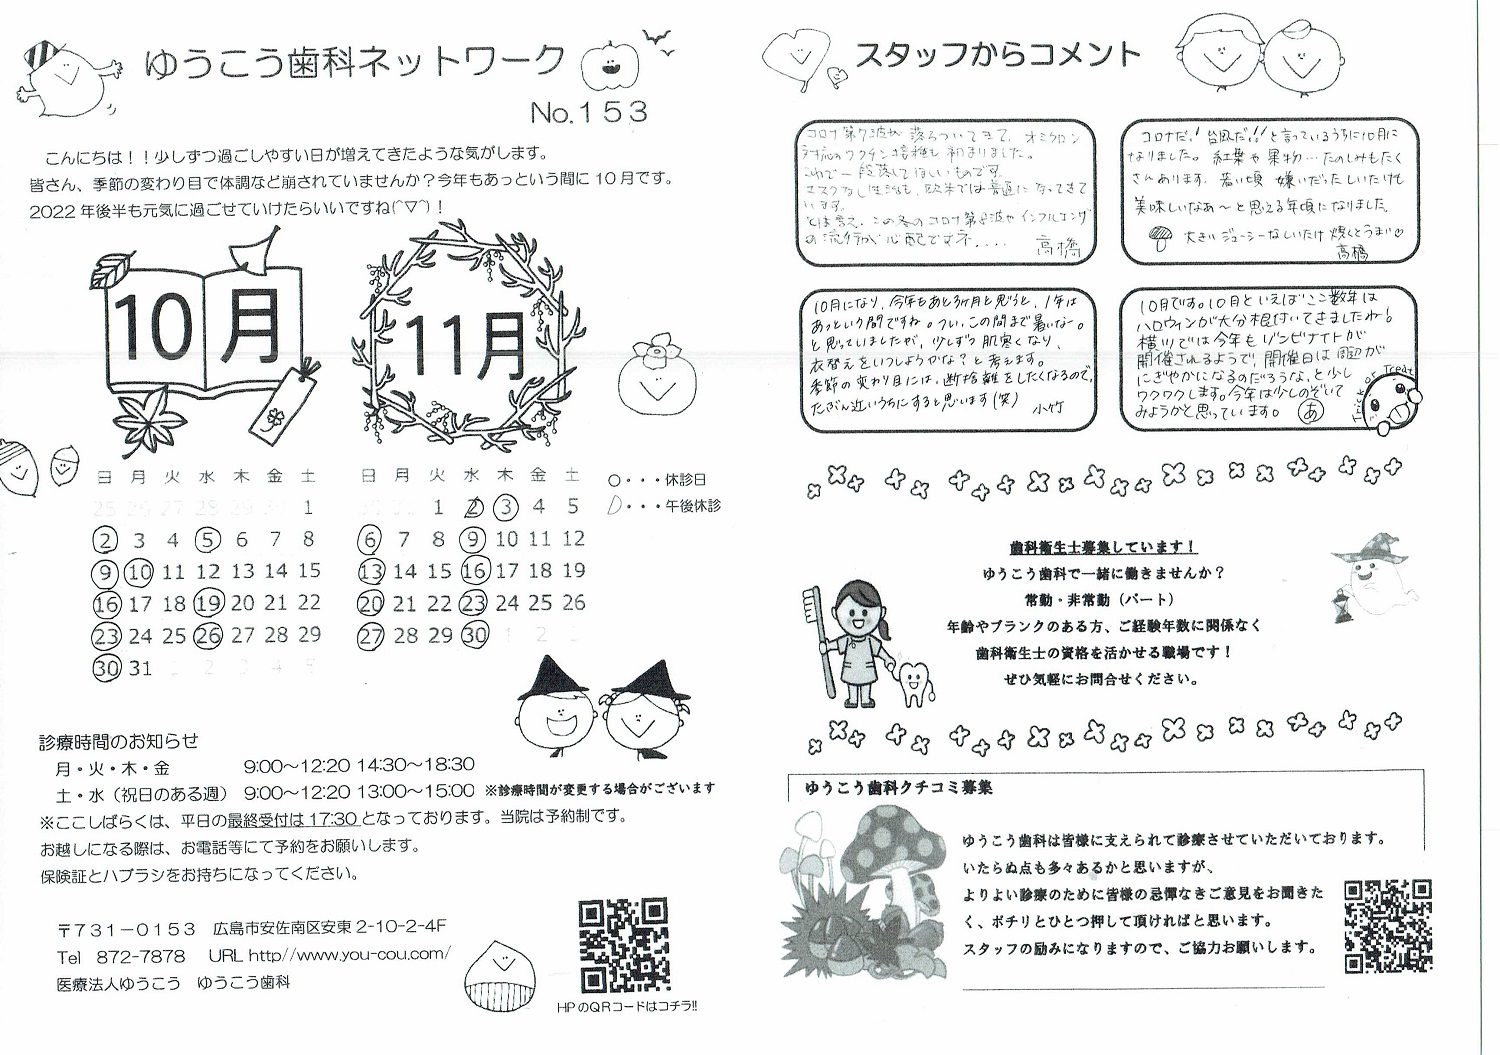 ゆうこう歯科ネットワーク
No.153
こんにちは！！少しずつ過ごしやすい日が増えてきたような気がします。
皆さん、季節の変わり目で体調など崩されていませんか？今年もあっという間に10月です。
2022年後半も元気に過ごせていけたらいいですね(^▽^)！
10月
11月
日 月 火 水 木 金 土
25 26 27 28 29 30 1
2 3 4 5 6 7 8
9 10 11 12 13 14 15
16 17 18 19 20 21 22
23 24 25 26 27 28 29
30 31 1 2 3 4 5
日 月 火 水 木 金 土
1 2 3 4 5
6 7 8 9 10 11 12
13 14 15 16 17 18 19
20 21 22 23 24 25 26
27 28 29 30 1 2 3
○・・・休診日
・・・午後休診
診療時間のお知らせ
月・火・木・金 9:00～12:20 14:30～18:30
土・水（祝日のある週） 9:00～12:20 13:00～15:00 ※診療時間が変更する場合がございます
※ここしばらくは、平日の最終受付は17:30となっております。当院は予約制です。
お越しになる際は、お電話等にて予約をお願いします。
保険証とハブラシをお持ちになってください。
〒731－0153 広島市安佐南区安東2-10-2-4F
Tel 872-7878 URL http//www.you-cou.com/
医療法人ゆうこう ゆうこう歯科
HPのQRコードはコチラ!!
スタッフからコメント
コロナ第7波が落ちついてきて、オミクロン
対応のワクチン接種も初まりました。
これで一段落してほしいものです。
マスクなし生活も、欧米では普通になってきて
います。
とは言え、この冬のコロナ第8波やインフルエンザ
の流行が心配ですネ....
高橋
コロナだ！台風だ!!と言っているうちに10月に
なりました。紅葉や果物…たのしみもたく
さんあります。若い頃 嫌いだったしいたけも
美味しいなぁ～と思える年頃になりました。
大きいジューシーなしいたけ 焼くとうまい♡
高橋
10月になり、今年もあと3ヶ月と思うと、1年は
あっという間ですね。つい、この間まで暑いなー。
と思っていましたが、少しずつ肌寒くなり、
衣替えをいつしようかな？と考えます。
季節の変わり目には、断捨離をしたくなるので、
たぶん近いうちにすると思います(笑)
小竹
10月です。10月といえばここ数年は
ハロウィンが大分根付いてきましたね！
横川では今年もゾンビナイトが
開催されるようで、開催日は周辺が
にぎやかになるのだろうな、と少し
ワクワクします。今年は少しのぞいて
みようかと思っています。 あ
Trick or Treat
歯科衛生士募集しています！
ゆうこう歯科で一緒に働きませんか？
常勤・非常勤（パート）
年齢やブランクのある方、ご経験年数に関係なく
歯科衛生士の資格を活かせる職場です！
ぜひ気軽にお問合せください。
ゆうこう歯科クチコミ募集
ゆうこう歯科は皆様に支えられて診療させていただいております。
いたらぬ点も多々あるかと思いますが、
よりよい診療のために皆様の忌憚なきご意見をお聞きた
く、ポチリとひとつ押して頂ければと思います。
スタッフの励みになりますので、ご協力お願いします。